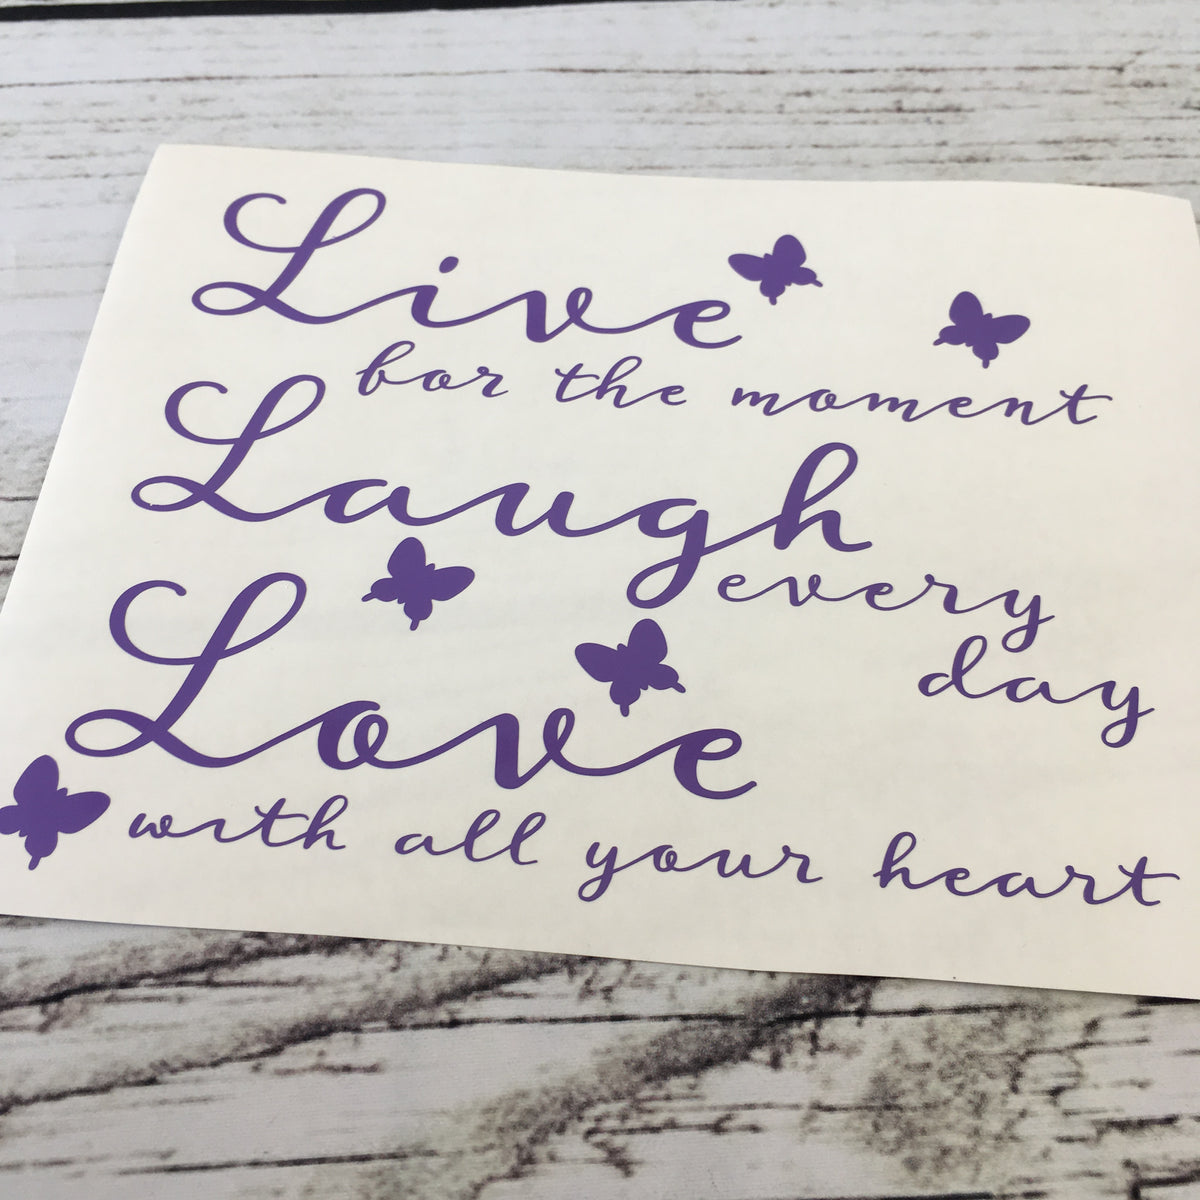 Live
for the moment
Laugh
every
day
Love
with all your heart